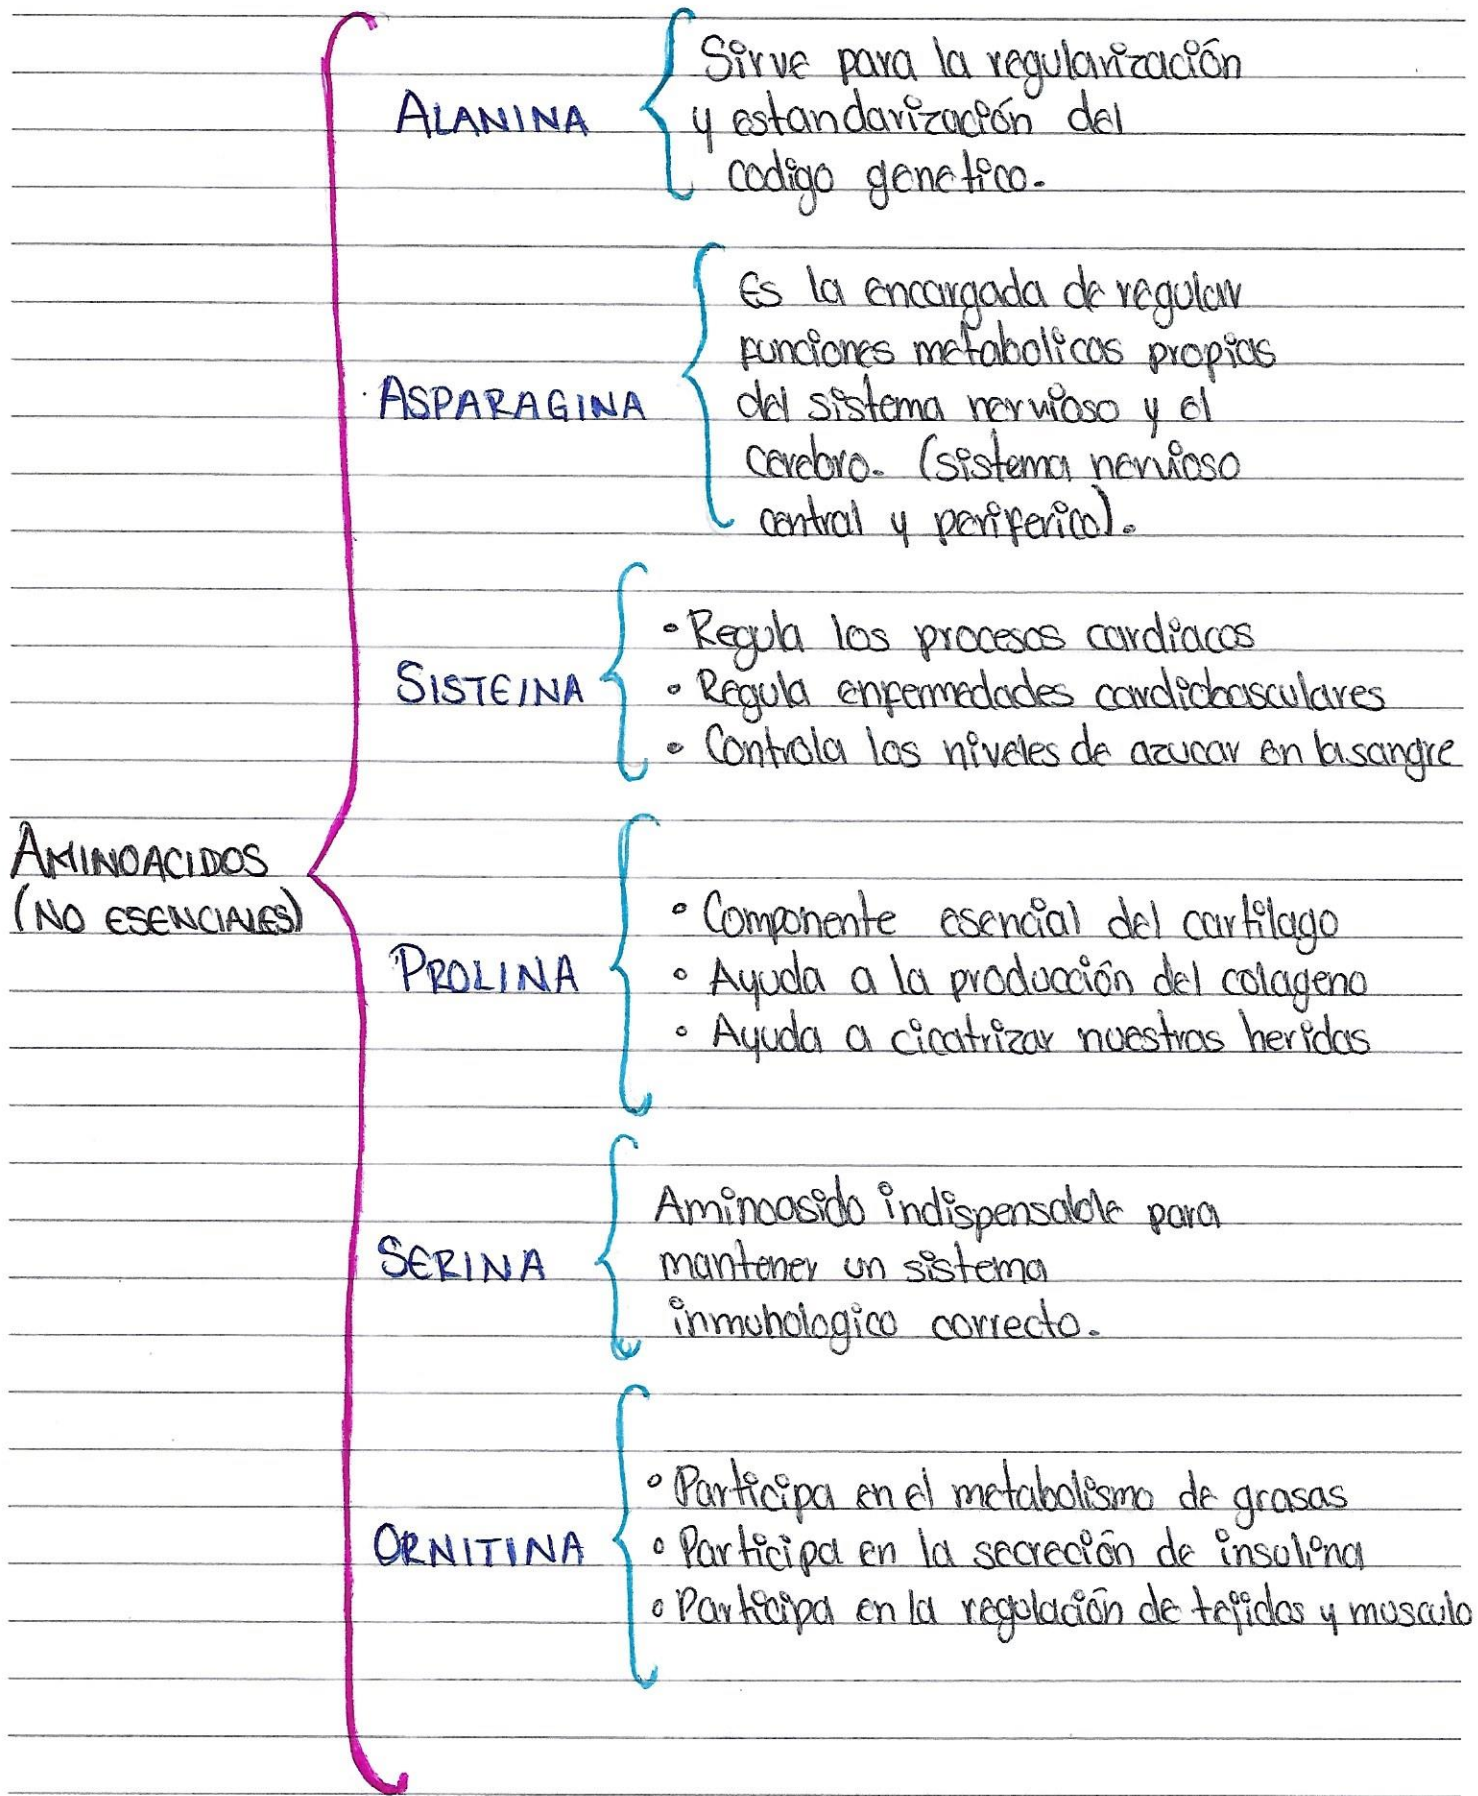 ALANINA
Sirve para la regularización
y estandarización del
codigo genetico.
ASPARAGINA
Es la encargada de regular
funciones metabolicas propias
del sistema nervioso y el
cerebro. (sistema nervioso
central y periferico).
SISTEINA
• Regula los procesos cardiacos
• Regula enfermedades cardiobasculares
• Controla los niveles de azucar en la sangre
AMINOACIDOS
(NO ESENCIALES)
PROLINA
• Componente esencial del cartilago
• Ayuda a la producción del colageno
• Ayuda a cicatrizar nuestras heridas
SERINA
Aminoasido indispensable para
mantener un sistema
inmunologico correcto.
ORNITINA
• Participa en el metabolismo de grasas
• Participa en la secreción de insulina
• Participa en la regulación de tejidos y musculo